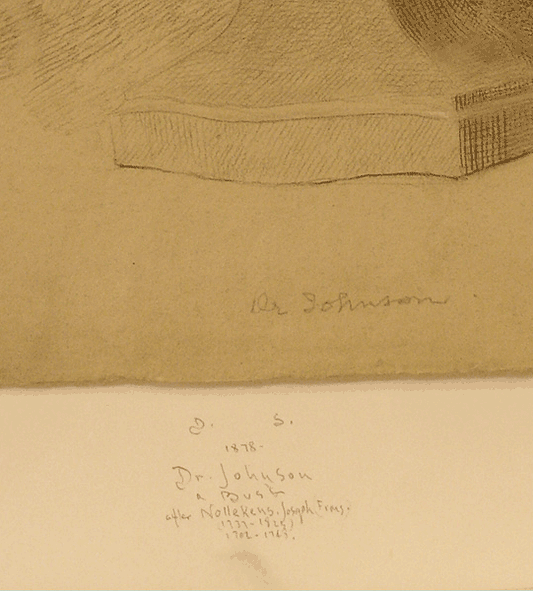 Dr Johnson
D. S.
1878-
Dr. Johnson
a Bust
after Nollekens. Joseph,
(1737-1823)
1702-1763.